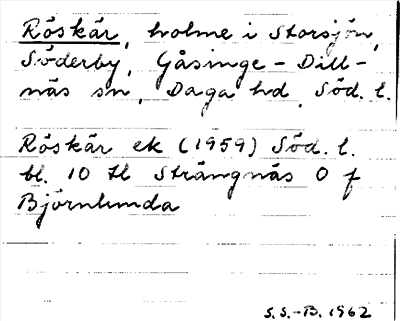 Röskär, holme i Storsjön,
Söderby, Gåsinge-Dill-
näs sn, Daga hd, Söd. l.
Röskär ek (1959) Söd. l.
bl. 10 tl Strängnäs O f
Björnlunda
S.S.-B. 1962